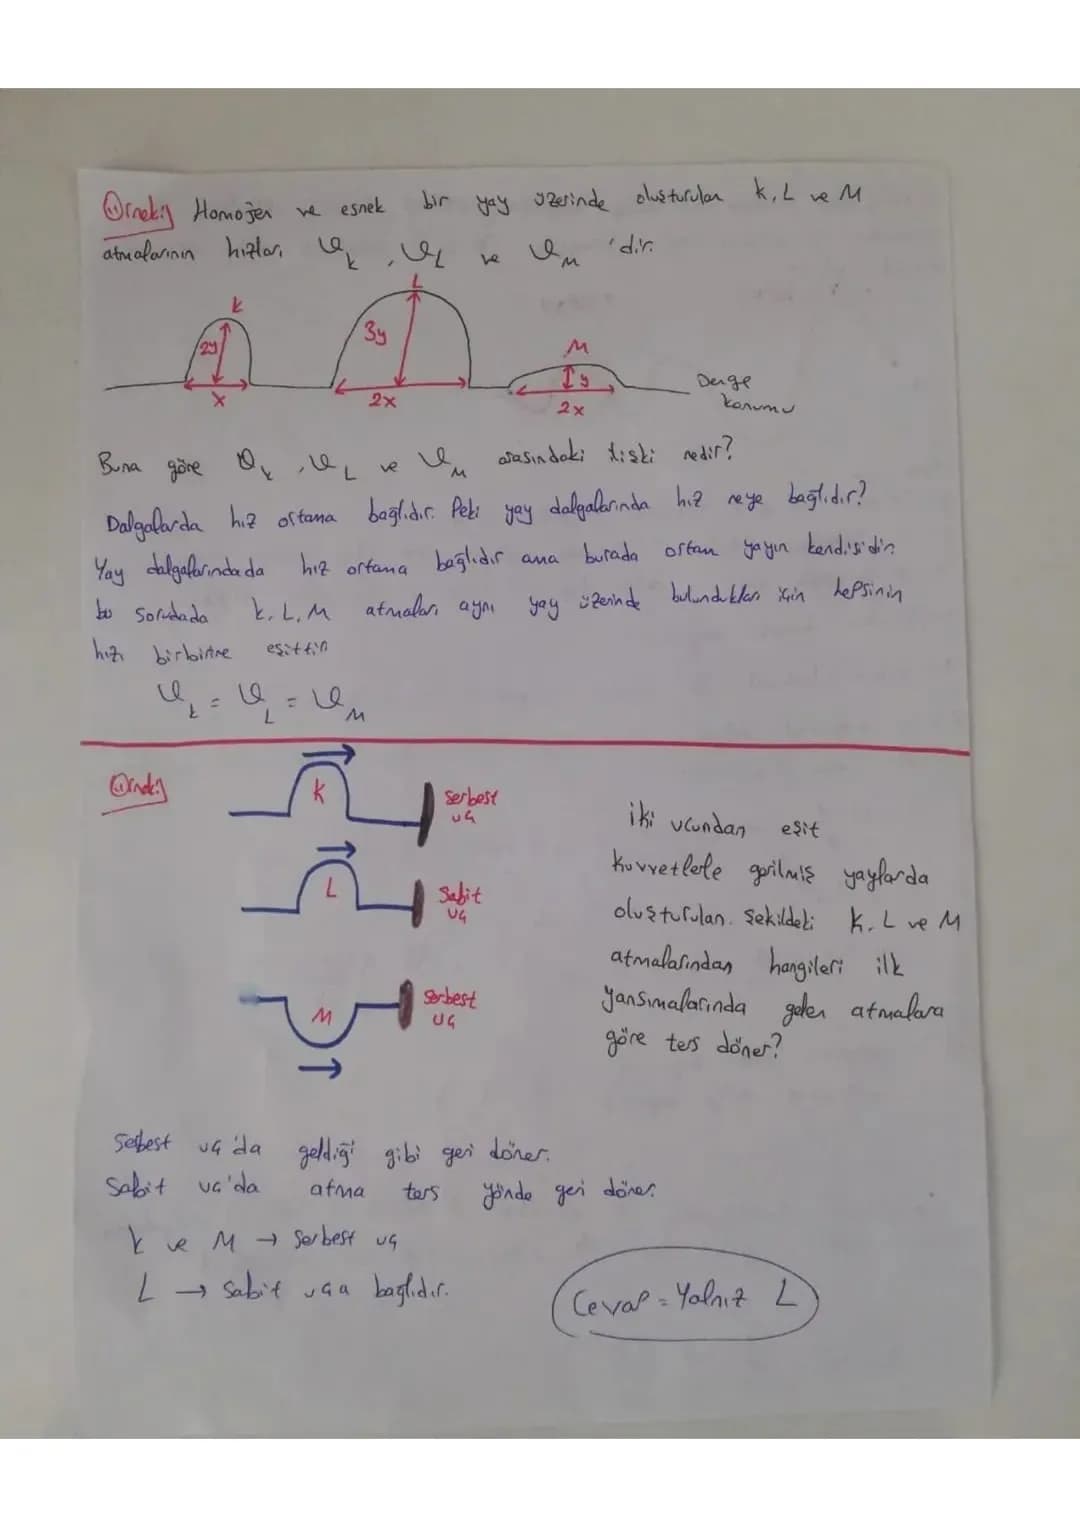 Örnek;; Homojen ve esnek bir yay üzerinde oluşturulan k, L ve M
atmalarının hızları ϑk, ϑL ve ϑM 'dir.
k
L
2y
3y
M
y
x
2x
2x
Denge
konumu
Buna göre ϑk, ϑL ve ϑM arasındaki ilişki nedir?
Dalgalarda hız ortama bağlıdır. Peki yay dalgalarında hız neye bağlıdır?
Yay dalgalarındada hız ortama bağlıdır ama burada ortam yayın kendisidir.
bu sorudada k, L, M atmaları aynı yay üzerinde bulundukları için hepsinin
hızı birbirine eşittir
ϑk = ϑL = ϑM
Örnek;;
K
Serbest
uç
L
Sabit
uç
M
Serbest
uç
iki ucundan eşit
kuvvetlerle gerilmiş yaylarda
oluşturulan. Şekildeki K, L ve M
atmalarından hangileri ilk
yansımalarında gelen atmalara
göre ters döner?
Serbest uç'da geldiği gibi geri döner.
Sabit uç'da atma ters yönde geri döner.
k ve M → Serbest uç
L → Sabit uca bağlıdır.
Cevap = Yalnız L